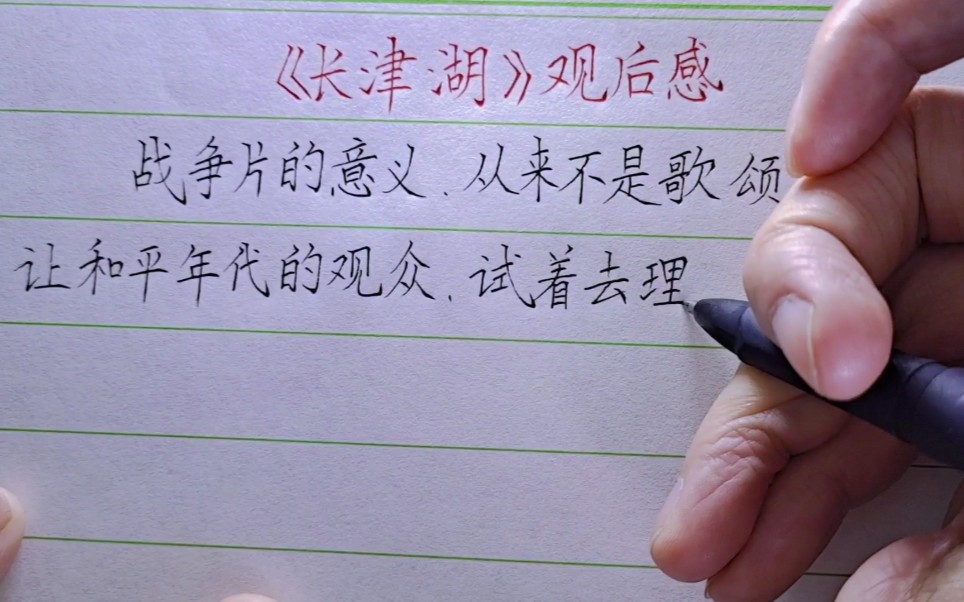 《长津湖》观后感
战争片的意义、从来不是歌颂
让和平年代的观众、试着去理